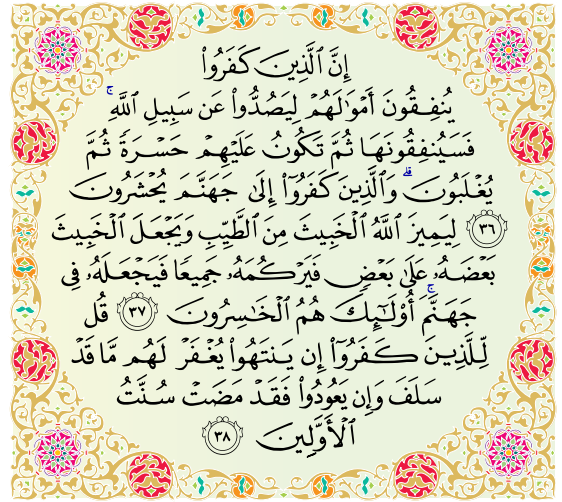 إِنَّ ٱلَّذِينَ كَفَرُوا۟
يُنفِقُونَ أَمْوَٰلَهُمْ لِيَصُدُّوا۟ عَن سَبِيلِ ٱللَّهِ ۚ
فَسَيُنفِقُونَهَا ثُمَّ تَكُونُ عَلَيْهِمْ حَسْرَةً ثُمَّ
يُغْلَبُونَ ۗ وَٱلَّذِينَ كَفَرُوٓا۟ إِلَىٰ جَهَنَّمَ يُحْشَرُونَ
٣٦ لِيَمِيزَ ٱللَّهُ ٱلْخَبِيثَ مِنَ ٱلطَّيِّبِ وَيَجْعَلَ ٱلْخَبِيثَ
بَعْضَهُۥ عَلَىٰ بَعْضٍ فَيَرْكُمَهُۥ جَمِيعًا فَيَجْعَلَهُۥ فِى
جَهَنَّمَ ۚ أُو۟لَٰٓئِكَ هُمُ ٱلْخَٰسِرُونَ ٣٧ قُل
لِّلَّذِينَ كَفَرُوٓا۟ إِن يَنتَهُوا۟ يُغْفَرْ لَهُم مَّا قَدْ
سَلَفَ وَإِن يَعُودُوا۟ فَقَدْ مَضَتْ سُنَّتُ
ٱلْأَوَّلِينَ ٣٨